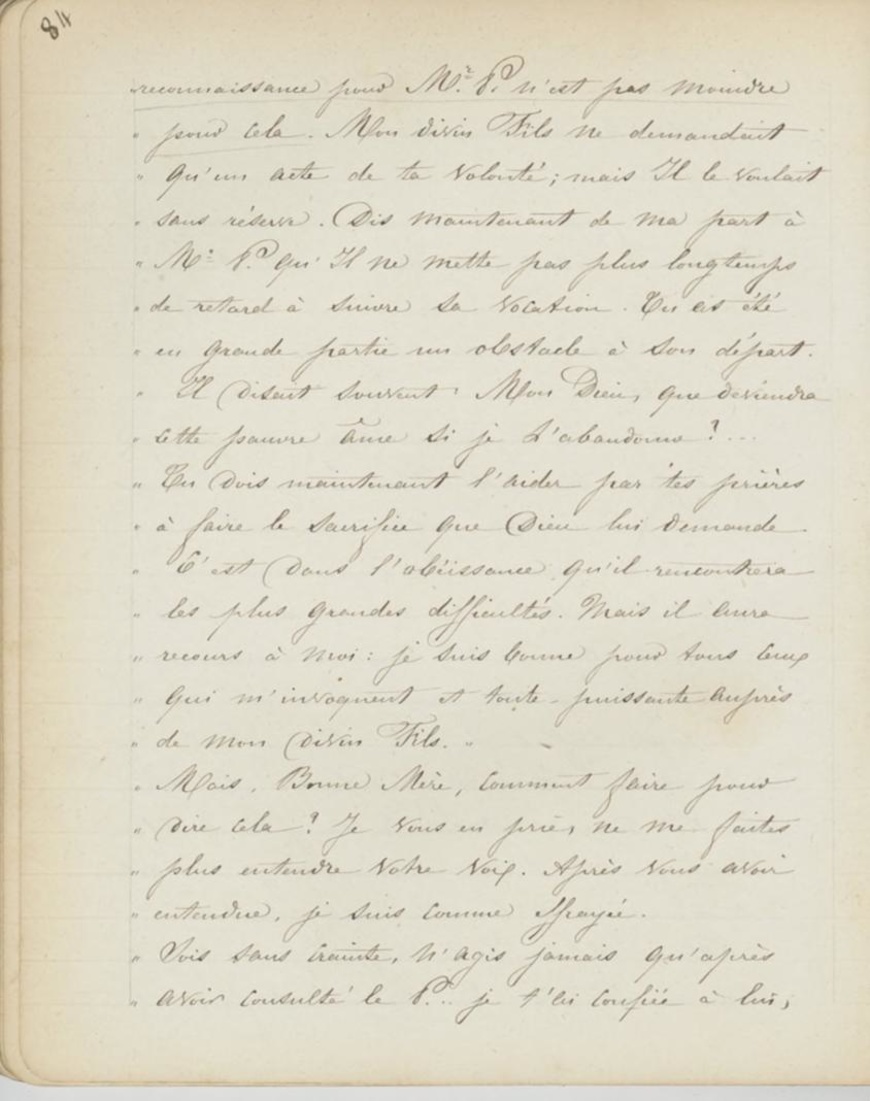 84
reconnaissance pour Mr. P. n'est pas moindre
" pour cela. Mon divin Fils ne demandait
" qu'un acte de ta volonté ; mais Il le voulait
" sans réserve. Dis maintenant de ma part à
" Mr. P. qu'Il ne mette pas plus longtemps
" de retard à suivre sa vocation. Tu as été
" en grande partie un obstacle à son départ.
" Il disait souvent : Mon Dieu, que deviendra
" cette pauvre âme si je l'abandonne ? ...
" Tu dois maintenant l'aider par tes prières
" à faire le sacrifice que Dieu lui demande.
" C'est dans l'obéissance qu'il rencontrera
" les plus grandes difficultés. Mais il aura
" recours à moi : je suis bonne pour tous ceux
" qui m'invoquent et toute-puissante auprès
" de mon divin Fils. "
" Mais, Bonne Mère, comment faire pour
" dire cela ? Je vous en prie, ne me faites
" plus entendre votre voix. Après vous avoir
" entendue, je suis comme effrayée.
" Sois sans crainte, n'agis jamais qu'après
" avoir consulté le P... je t'ai confiée à lui ;